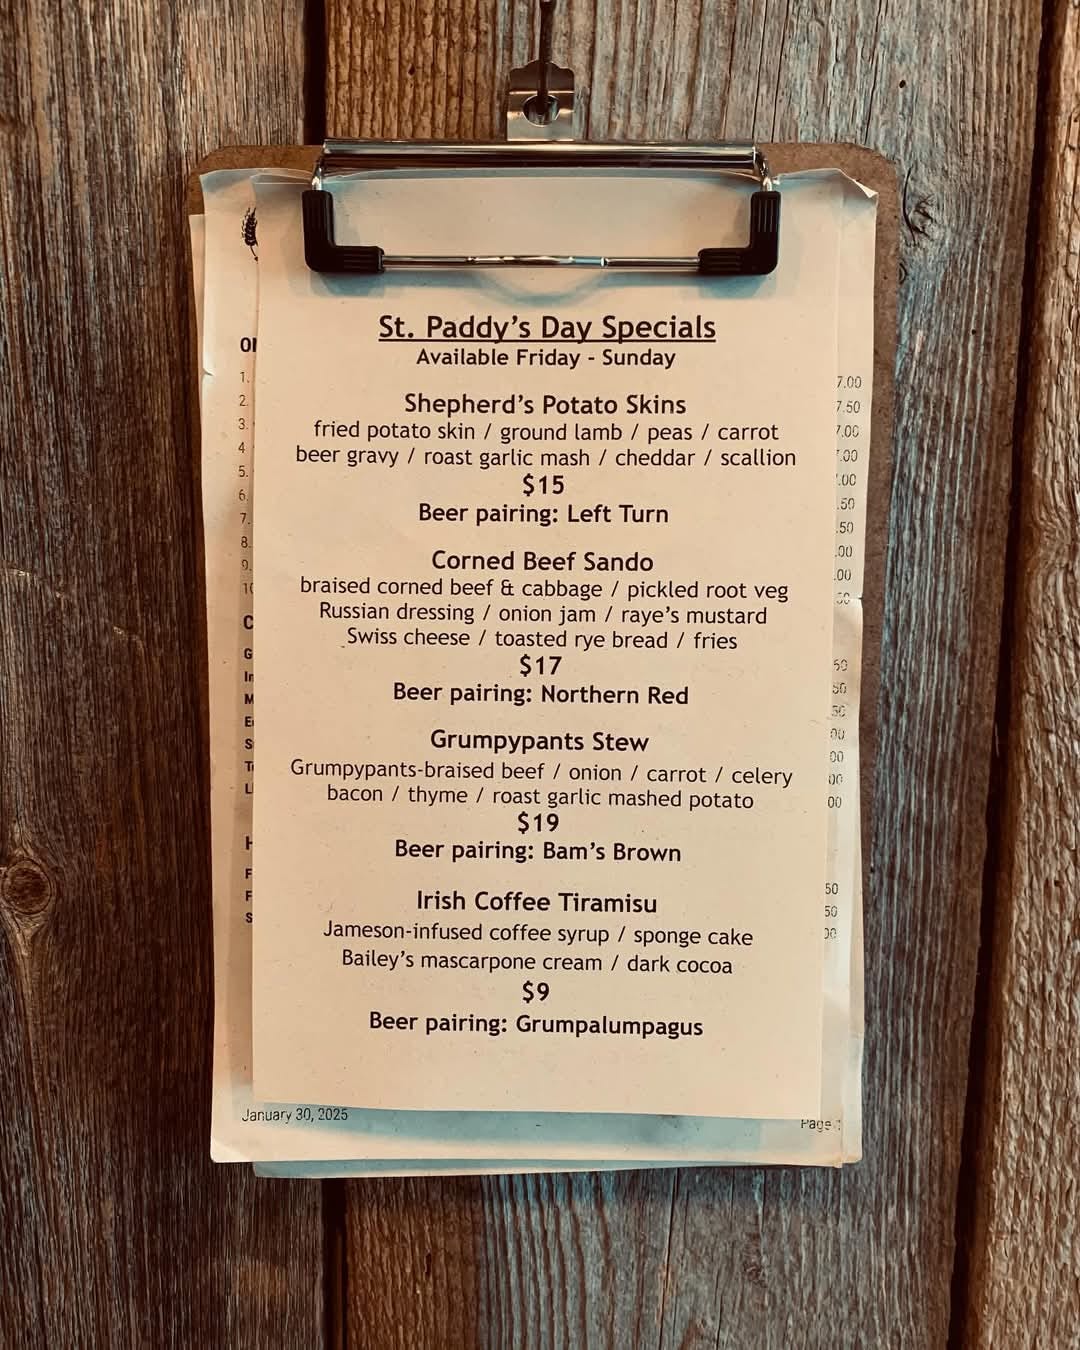 St. Paddy's Day Specials
Available Friday - Sunday
Shepherd's Potato Skins
fried potato skin / ground lamb / peas / carrot
beer gravy / roast garlic mash / cheddar / scallion
$15
Beer pairing: Left Turn
Corned Beef Sando
braised corned beef & cabbage / pickled root veg
Russian dressing / onion jam / raye's mustard
Swiss cheese / toasted rye bread / fries
$17
Beer pairing: Northern Red
Grumpypants Stew
Grumpypants-braised beef / onion / carrot / celery
bacon / thyme / roast garlic mashed potato
$19
Beer pairing: Bam's Brown
Irish Coffee Tiramisu
Jameson-infused coffee syrup / sponge cake
Bailey's mascarpone cream / dark cocoa
$9
Beer pairing: Grumpalumpagus
January 30, 2025
Page